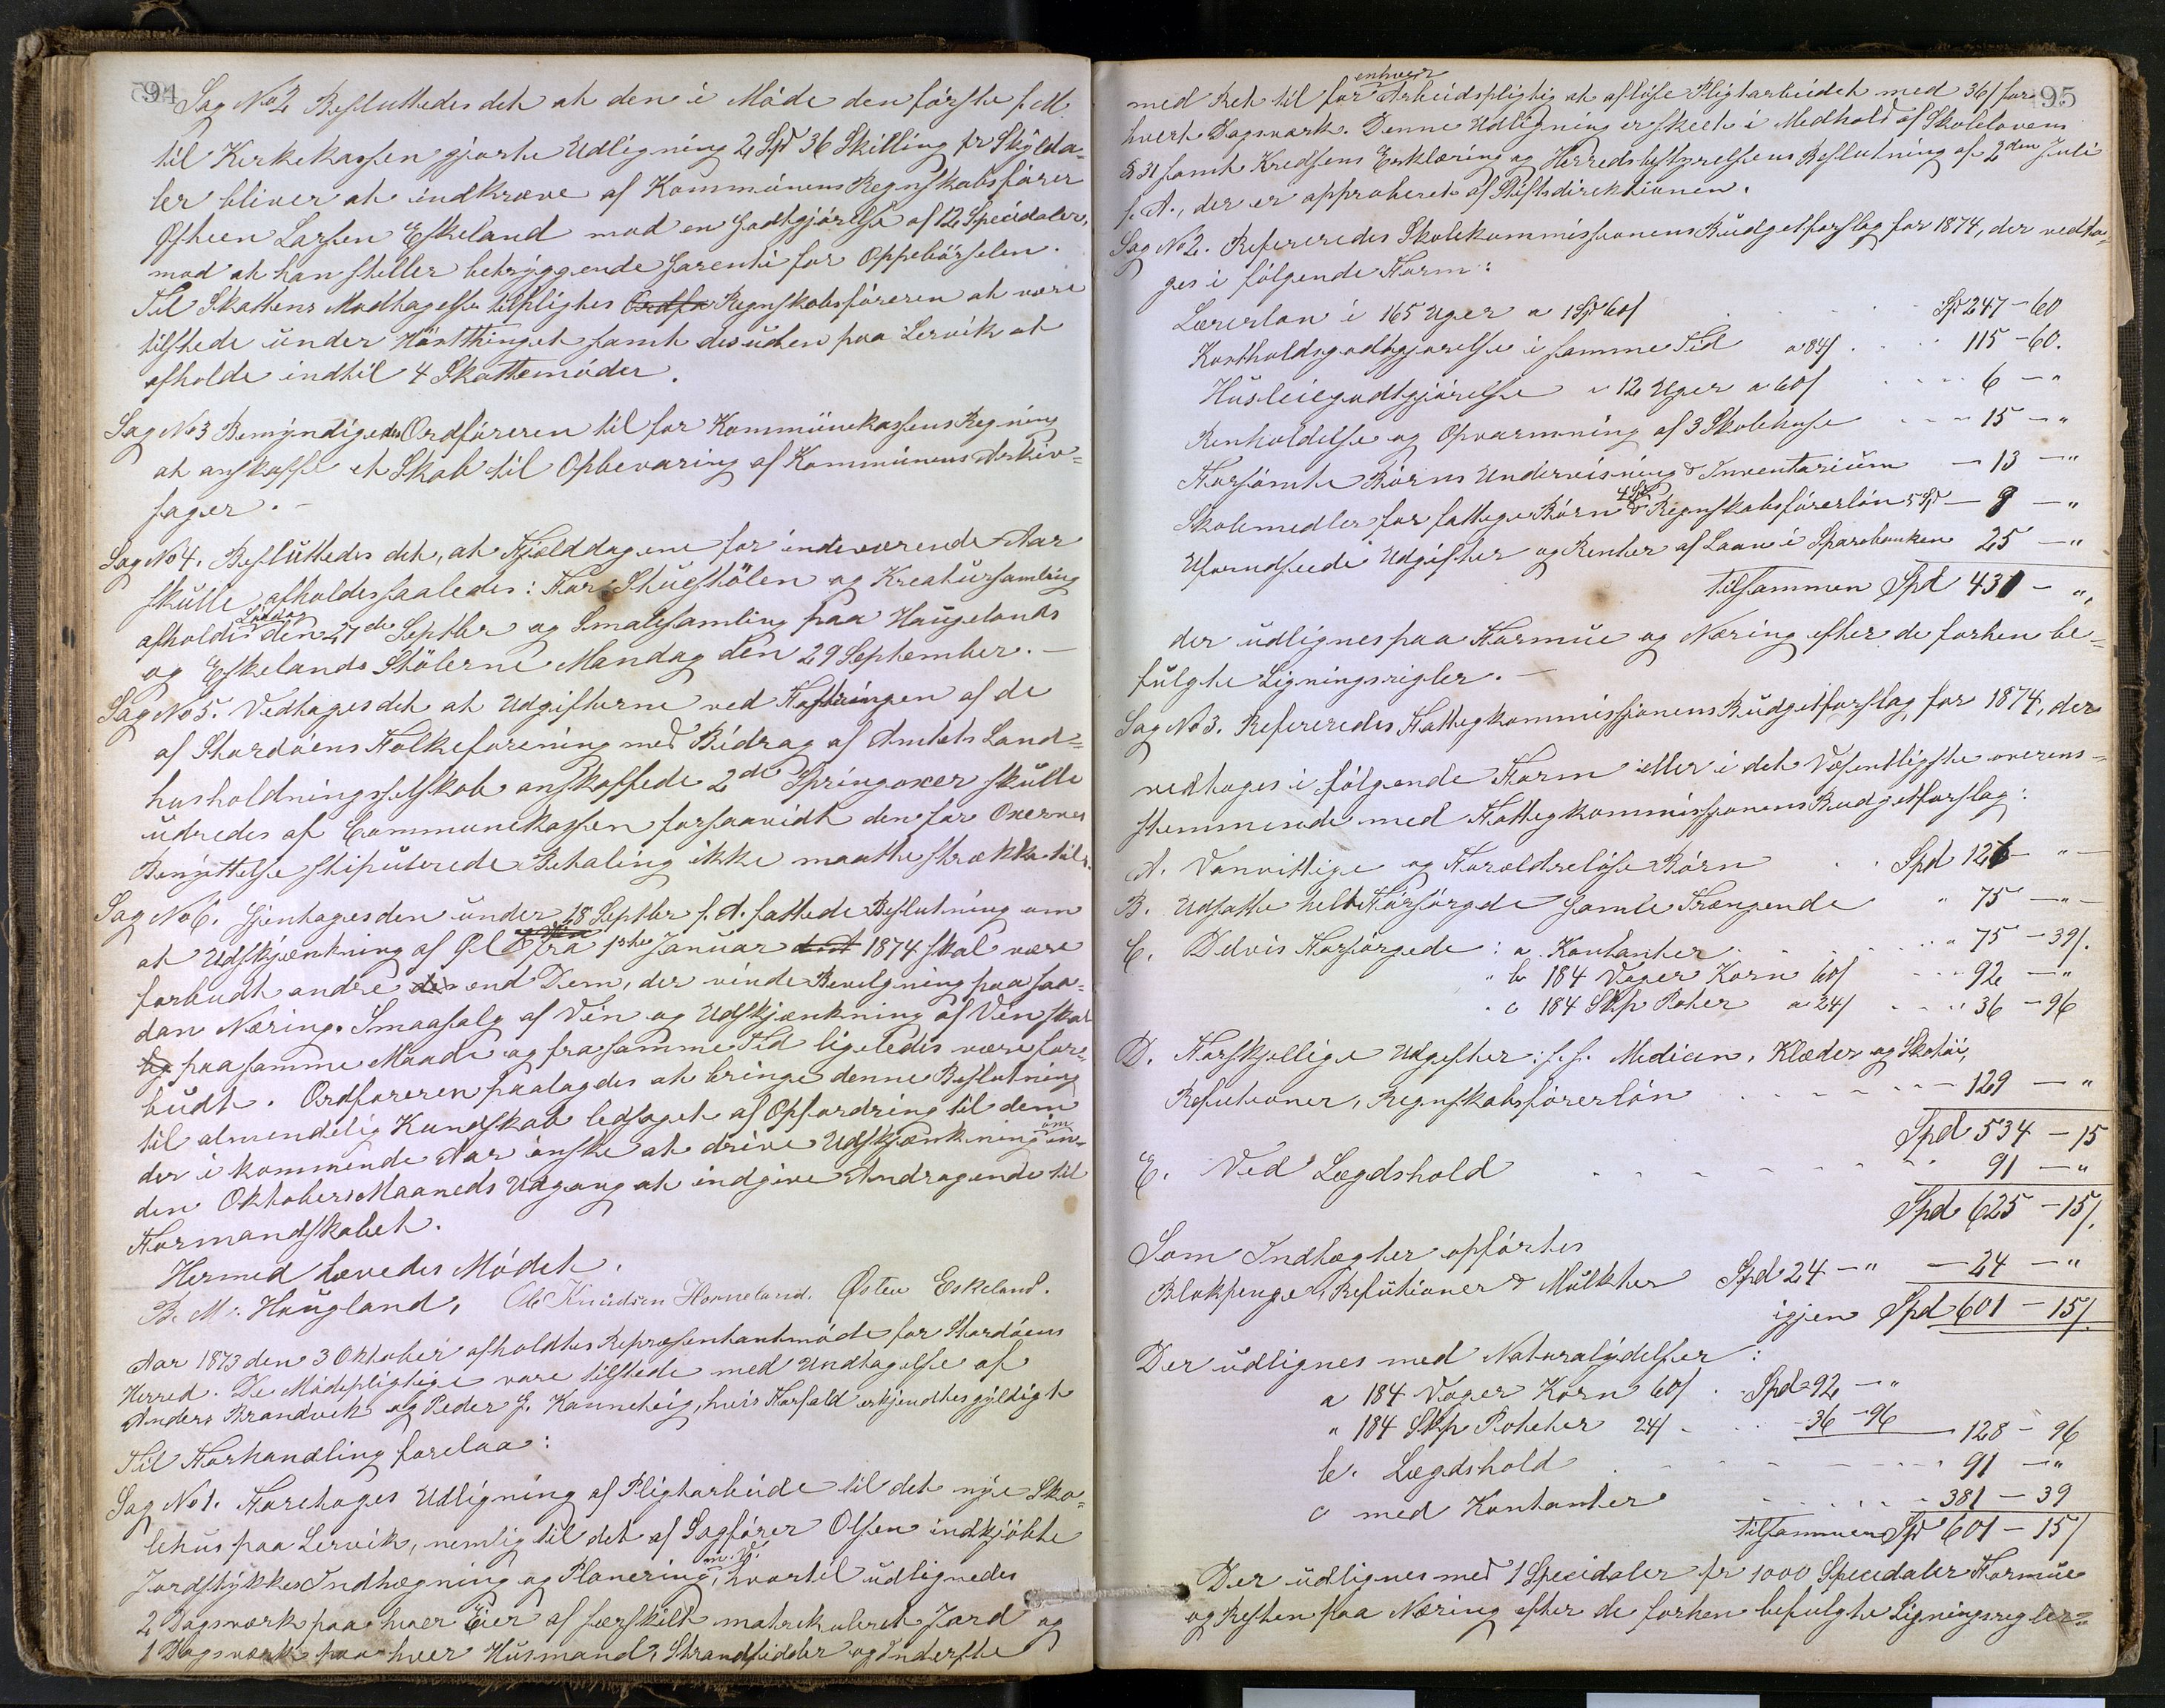 94
Sag No 2 Besluttedes det at den i Møde den første f. M.
til Kirkekassen gjorte Udligning 2 Spd 36 Skilling pr Skylda-
ler bliver at indkræve af Kommunens Regnskabsfører
Østeen Larsen Eskeland mod en Godtgjørelse af 12 Speciedaler,
mod at han stiller betryggende Garenti for Oppebørselen.
Til Skattens Modtagelse tilpligtes Ordfø Regnskabsføreren at være
tilstede under Høstthinget samt desuden paa Lervik at
afholde indtil 4 Skattemøder.
Sag No 3 Bemyndigedes Ordføreren til for Kommunekassens Regning
at anskaffe et Skab til Opbevaring af Kommunens Arkiv-
sager. -
Sag No 4. Besluttedes det, at Fjelddagene for indeværende Aar
skulle afholdes saaledes: For Stuestølen og Kreatursamling
afholdes Lørdag den 27de Septbr og Smalesamling paa Haugelands
og Eskelands Stølerne Mandag den 29 September. -
Sag No 5. Vedtoges det at Udgifterne ved Fostringen af de
af Stordøens Folkeforening med Bidrag af Amtets Land-
husholdningsselskab anskaffede 2de Springoxer skulle
udredes af Communekassen forsaavidt den for Oxernes
Benyttelse stipulerede Betaling ikke maatte strække til.
Sag No 6. Gjentoges den under 18 Septbr f. A. fattede Beslutning om
at Udskjænkning af Øl & Vin fra 1ste Januar d. A 1874 skal være
forbudt andre den end Dem, der vinde Bevilgning paa saa-
dan Næring. Smaasalg af Vin og Udskjænkning af Vin skal
og paa samme Maade og fra samme Tid ligeledes være for-
budt. Ordføreren paalagdes at bringe denne Beslutning
til almendelig Kundskab ledsaget af Opfordring til dem
der i kommende Aar ønske at drive Udskjænkning om in-
den Oktober Maaneds Udgang at indgive Andragende til
Formandskabet.
Hermed hævedes Mødet.
B. M. Haugland, Ole Knudsen Horneland. Østen Eskeland.
Aar 1873 den 3 Oktober afholdtes Repræsentantmøde for Stordøens
Herred. De Mødepligtige vare tilstede med Undtagelse af
Anders Brandvik og Peder J. Kanneløig, hvis Forfald erkjendtes gyldigt
Til Forhandling forelaa:
Sag No 1. Foretoges Udligning af Pligtarbeide til det nye Sko-
lehus paa Lervik, nemlig til det af Sagfører Olsen indkjøbte
Jordstykkes Indhegning og Planering m. V., hvortil udlignedes
2 Dagsværk paa hver Eier af særskilt matrikuleret Jord og
1 Dagsværk paa hver Husmand, Strandsidder og Inderste
95
med Ret til for enhver Arbeidspligtig at afløse Pligtarbeidet med 36/ for
hvert Dagsværk. Denne Udligning er skeet i Medhold af Skolelovens
§ 31 samt Kredsens Erklæring og Herredsbestyrelsens Beslutning af 2den Juli
f. A., der er approberet af Stiftsdirektionen.
Sag No 2. Refereredes Skolekommissionens Budgetforslag for 1874, der vedto-
ges i følgende Form:
Lærerløn i 165 Uger a 1 Spd 60/ Spd 247 - 60
Kostholdsgodtgjørelse i samme Tid a 84/ 115 - 60.
Husleiegodtgjørelse i 12 Uger a 60/ 6 - "
Renholdelse og Opvarmning af 3 Skolehuse 15 - "
Forsømte Børns Undervisning & Inventarium - 13 - "
Skolemedler for fattige Børn 4 Spd & Regnskabsførerløn 5 Spd - 9 - "
Uforudseede Udgifter og Renter af Laan i Sparebanken 25 - "
Tilsammen Spd 431 - "
der udlignes paa Formue og Næring efter de forhen be-
fulgte Ligningsregler. -
Sag No 3. Refereredes Fattigkommissionens Budgetforslag for 1874, der
vedtoges i følgende Form eller i det Væsentligste overens-
stemmende med Fattigkommissionens Budgetforslag:
A. Vanvittige og Forældreløse Børn Spd 126 - "
B. Udsatte helt Forsørgede samle Trængende " 75 - "
C. Delvis Forsørgede: a. Kontanter " 75 - 39/.
" b 184 Voger Korn 60/ 92 - "
" c 184 Skp Poteter a 24/ " 36 - 96
D. Forskjellige Udgifter: s. s. Medicin, Klæder og Skotøi,
Refutioner, Regnskabsførerløn 129 - "
Spd 534 - 15
E. Ved Lægdshold 91 - "
Spd 625 - 15/.
Som Indtægter opførtes
Blokpenge, Refutioner & Mulkter Spd 24 - " - 24 - "
igjen Spd 601 - 15/
Der udlignes med Naturalydelser:
a 184 Voger Korn 60/ Spd 92 - "
" 184 Skp Poteter 24/ - 36 - 96 128 - 96
b. Lægdshold 91 - "
c med Kontanter 381 - 39
tilsammen Spd 601 - 15/
Der udlignes med 1 Speciedaler pr 1000 Speciedaler Formue
og Resten paa Næring efter de forhen befulgte Ligningsregler-